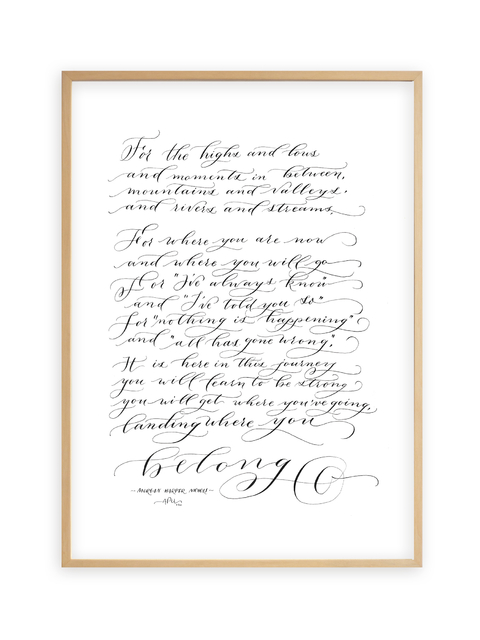 For the highs and lows
and moments in between,
mountains and valleys,
and rivers and streams,
For where you are now
and where you will go
For "I've always known"
and "I've told you so"
for "nothing is happening"
and "all has gone wrong,"
It is here in this journey
you will learn to be strong
you will get where you're going,
landing where you
belong
— MORGAN HARPER NICHOLS —